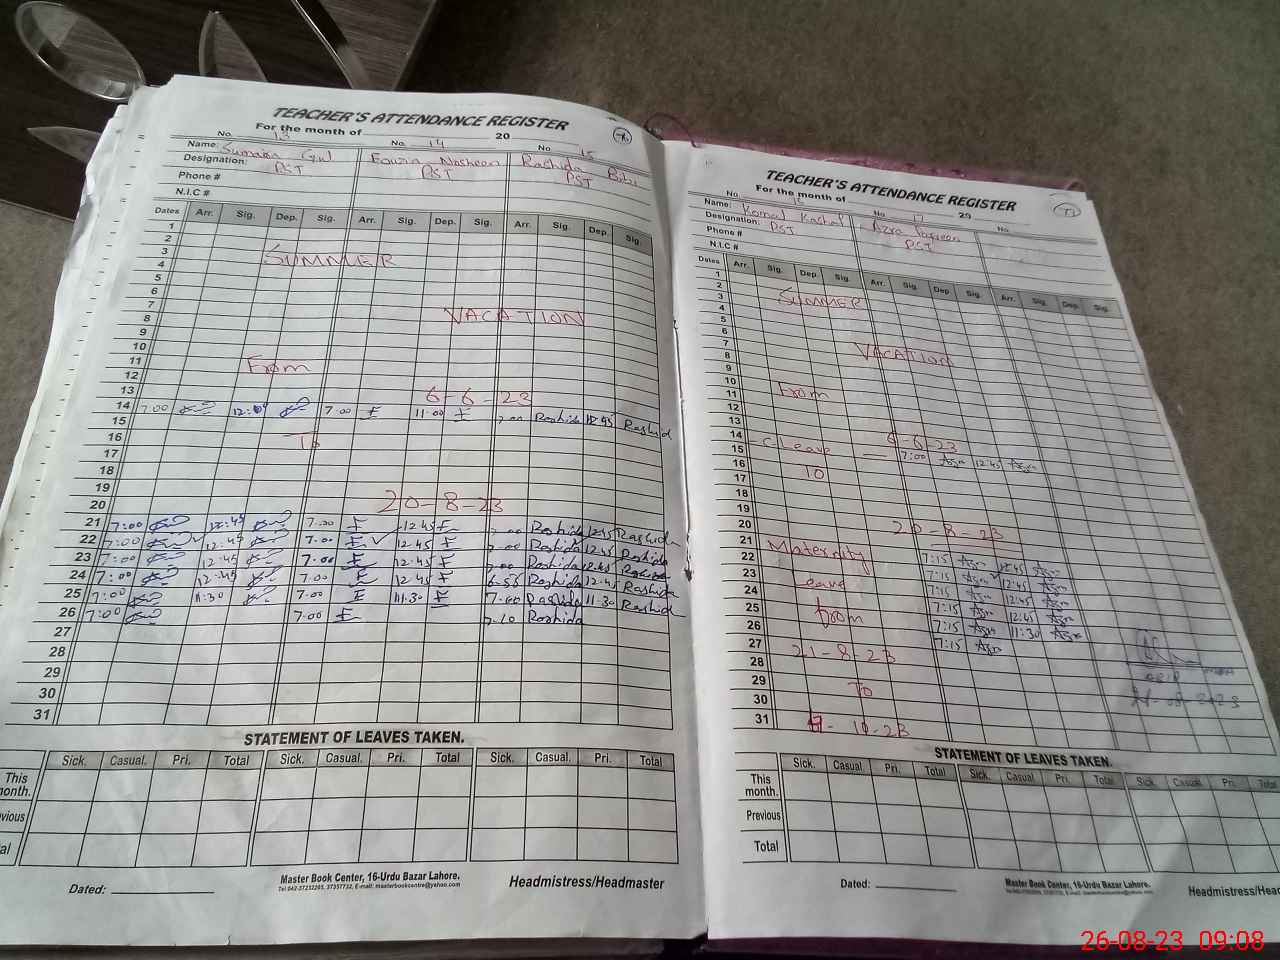 TEACHER'S ATTENDANCE REGISTER
For the month of 20
No. 13 No. 14 No. 15
Name: Sumaira Gul Fouzia Nosheen Rashida Bibi
Designation: PST PST PST
Phone #
N.I.C #
Dates Arr. Sig. Dep. Sig. Arr. Sig. Dep. Sig. Arr. Sig. Dep. Sig.
1
2
3
SUMMER
4
5
6
7
8 VACATION
9
10
11 From
12
13 6-6-23
14 7:00 7.00 11.00 Rashida 12:45 Rashida
15
16 To
17
18
19
20 20-8-23
21 7:00 12:45 7.00 12.45 7.00 Rashida 12:45 Rashida
22 7:00 12:45 7.00 12.45 7.00 Rashida 12:45 Rashida
23 7:00 12:45 7.00 12.45 7.00 Rashida 12:45 Rashida
24 7:00 12:45 7.00 12.45 6.55 Rashida 12:45 Rashida
25 7:00 11:30 7.00 11.30 7.00 Rashida 11.30 Rashida
26 7:00 7.00 7.10 Rashida
27
28
29
30
31
STATEMENT OF LEAVES TAKEN.
Sick. Casual. Pri. Total Sick. Casual. Pri. Total Sick. Casual. Pri. Total
This month.
Previous
Total
Dated:
Master Book Center, 16-Urdu Bazar Lahore.
Headmistress/Headmaster
TEACHER'S ATTENDANCE REGISTER
For the month of 20
No. No. 17 No.
Name: Komal Azra
Designation: PST PST
Phone #
N.I.C #
Dates Arr. Sig. Dep. Sig. Arr. Sig. Dep. Sig. Arr. Sig. Dep. Sig.
1
2
3 SUMMER
4
5
6
7
8 VACATION
9
10
11 From
12
13
14 6-6-23
15 C-Leave 7:00 12:45
16 To
17
18
19
20 20-8-23
21 Maternity
22 7:15 12:45
23 Leave 7:15 12:45
24 7:15 12:45
25 from 7:15 12:45
26 7:15 11:30
27 21-8-23 7:15
28
29 To
30
31
STATEMENT OF LEAVES TAKEN.
Sick. Casual. Pri. Total Sick. Casual. Pri. Total Sick. Casual. Pri. Total
This month.
Previous
Total
Dated:
Master Book Center, 16-Urdu Bazar Lahore.
Headmistress/Head
26-08-23 09:08